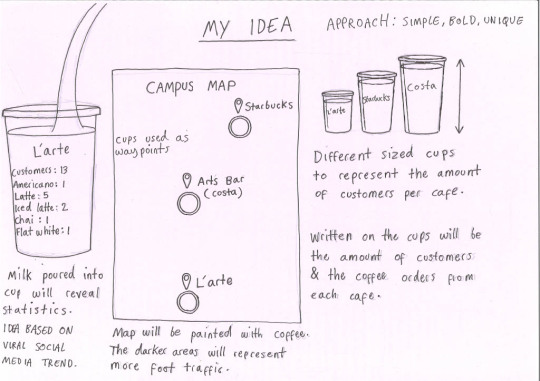 MY IDEA
APPROACH: SIMPLE, BOLD, UNIQUE
L'arte
Customers: 13
Americano: 1
Latte: 5
Iced latte: 2
Chai : 1
Flat white: 1
Milk poured into
cup will reveal
statistics.
IDEA BASED ON
VIRAL SOCIAL
MEDIA TREND.
CAMPUS MAP
Starbucks
Cups used as
waypoints
Arts Bar
(costa)
L'arte
Map will be painted with coffee.
The darker areas will represent
more foot traffic.
L'arte
Starbucks
Costa
Different sized cups
to represent the amount
of customers per cafe.
Written on the cups will be
the amount of customers
& the coffee orders from
each cafe.